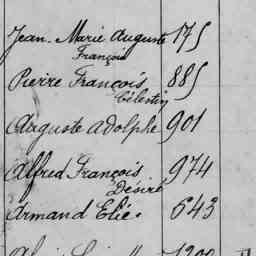 Jean-Marie Auguste 175
François
Pierre François 885
Célestin
Auguste Adolphe 901
Alfred François 974
Désiré
Armand Elie. 643